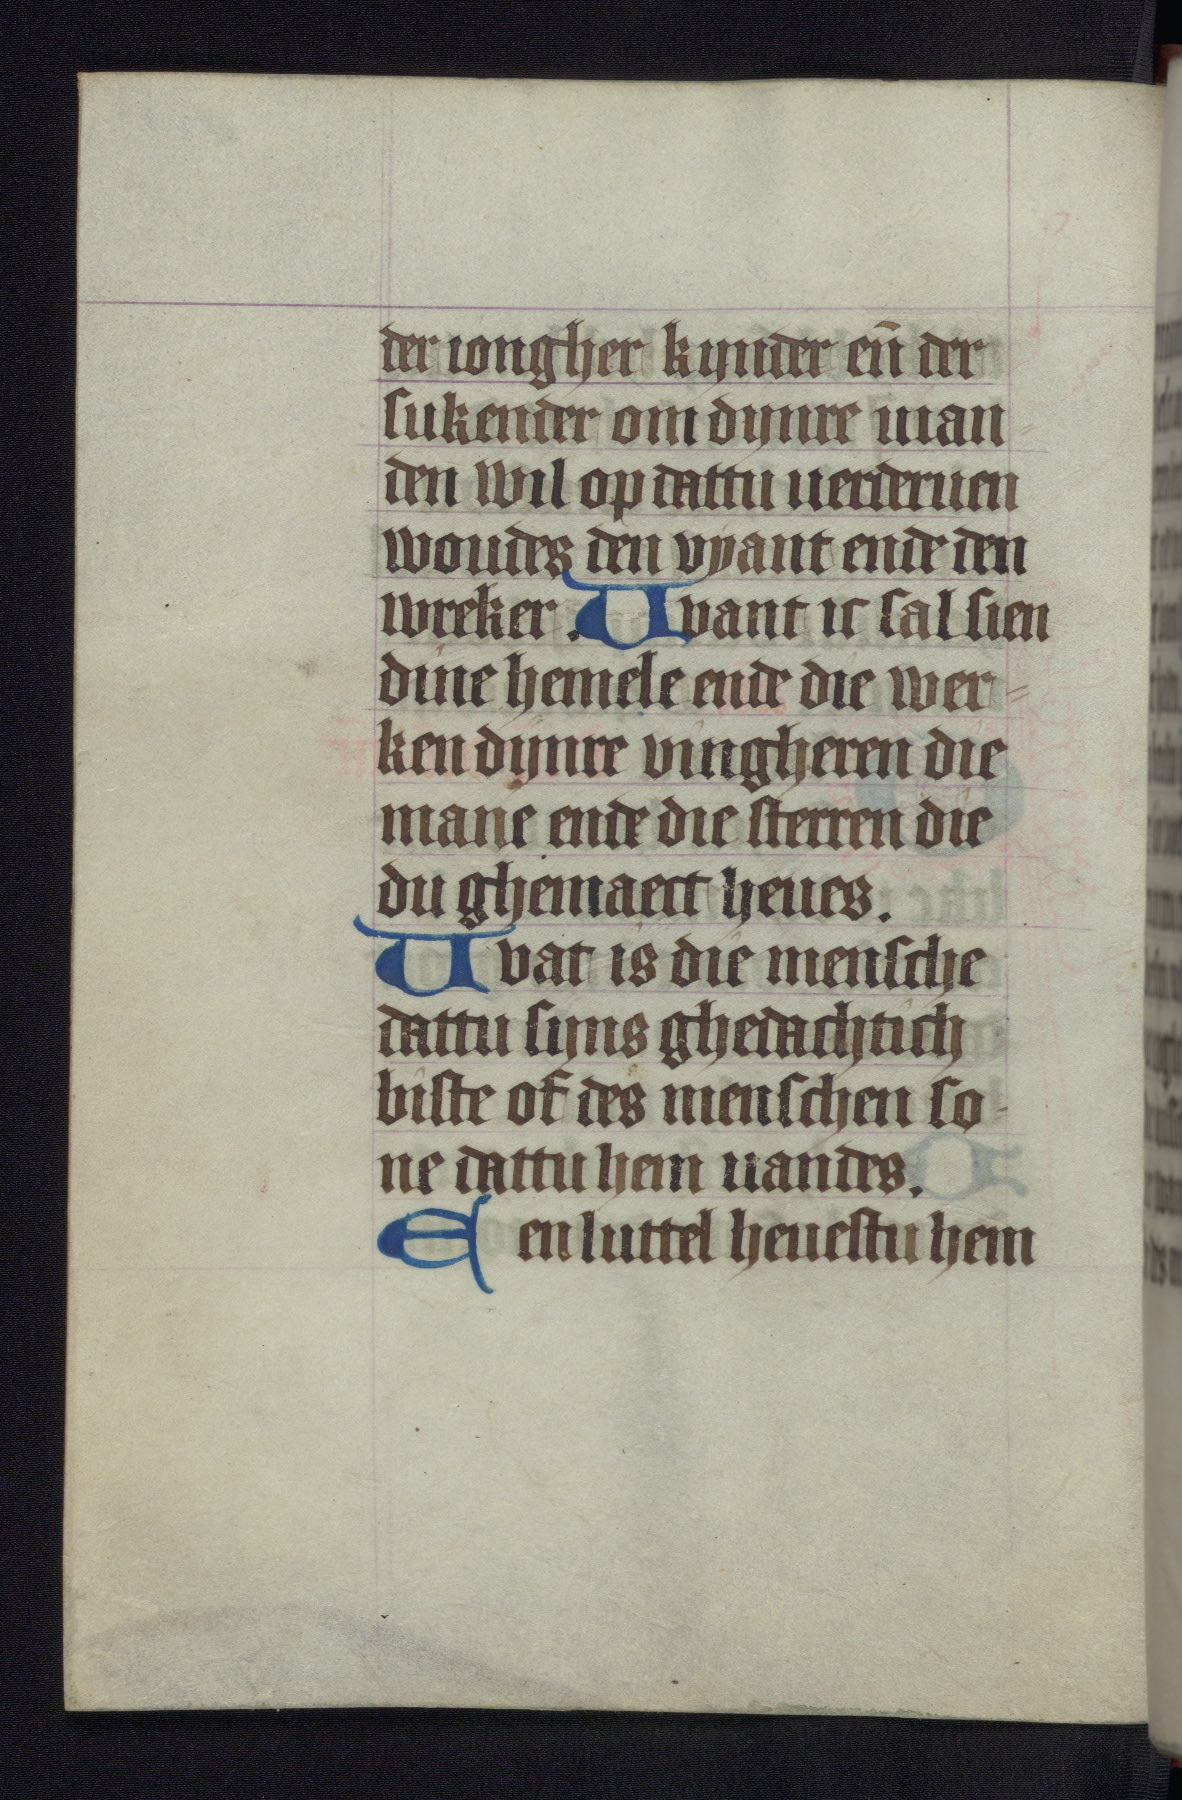 der iongher kynder en̄ der
sukender om dynre uian
den wil op dattu uerderuen
woudes den vyant ende den
wreker . Uvant ic sal sien
dine hemele ende die wer
ken dynre vingheren die
mane ende die sterren die
du ghemaect heues.
Uvat is die mensche
dattu syns ghedachtich
biste of des menschen so-
ne dattu hem uandes.
Een luttel heuestu hem